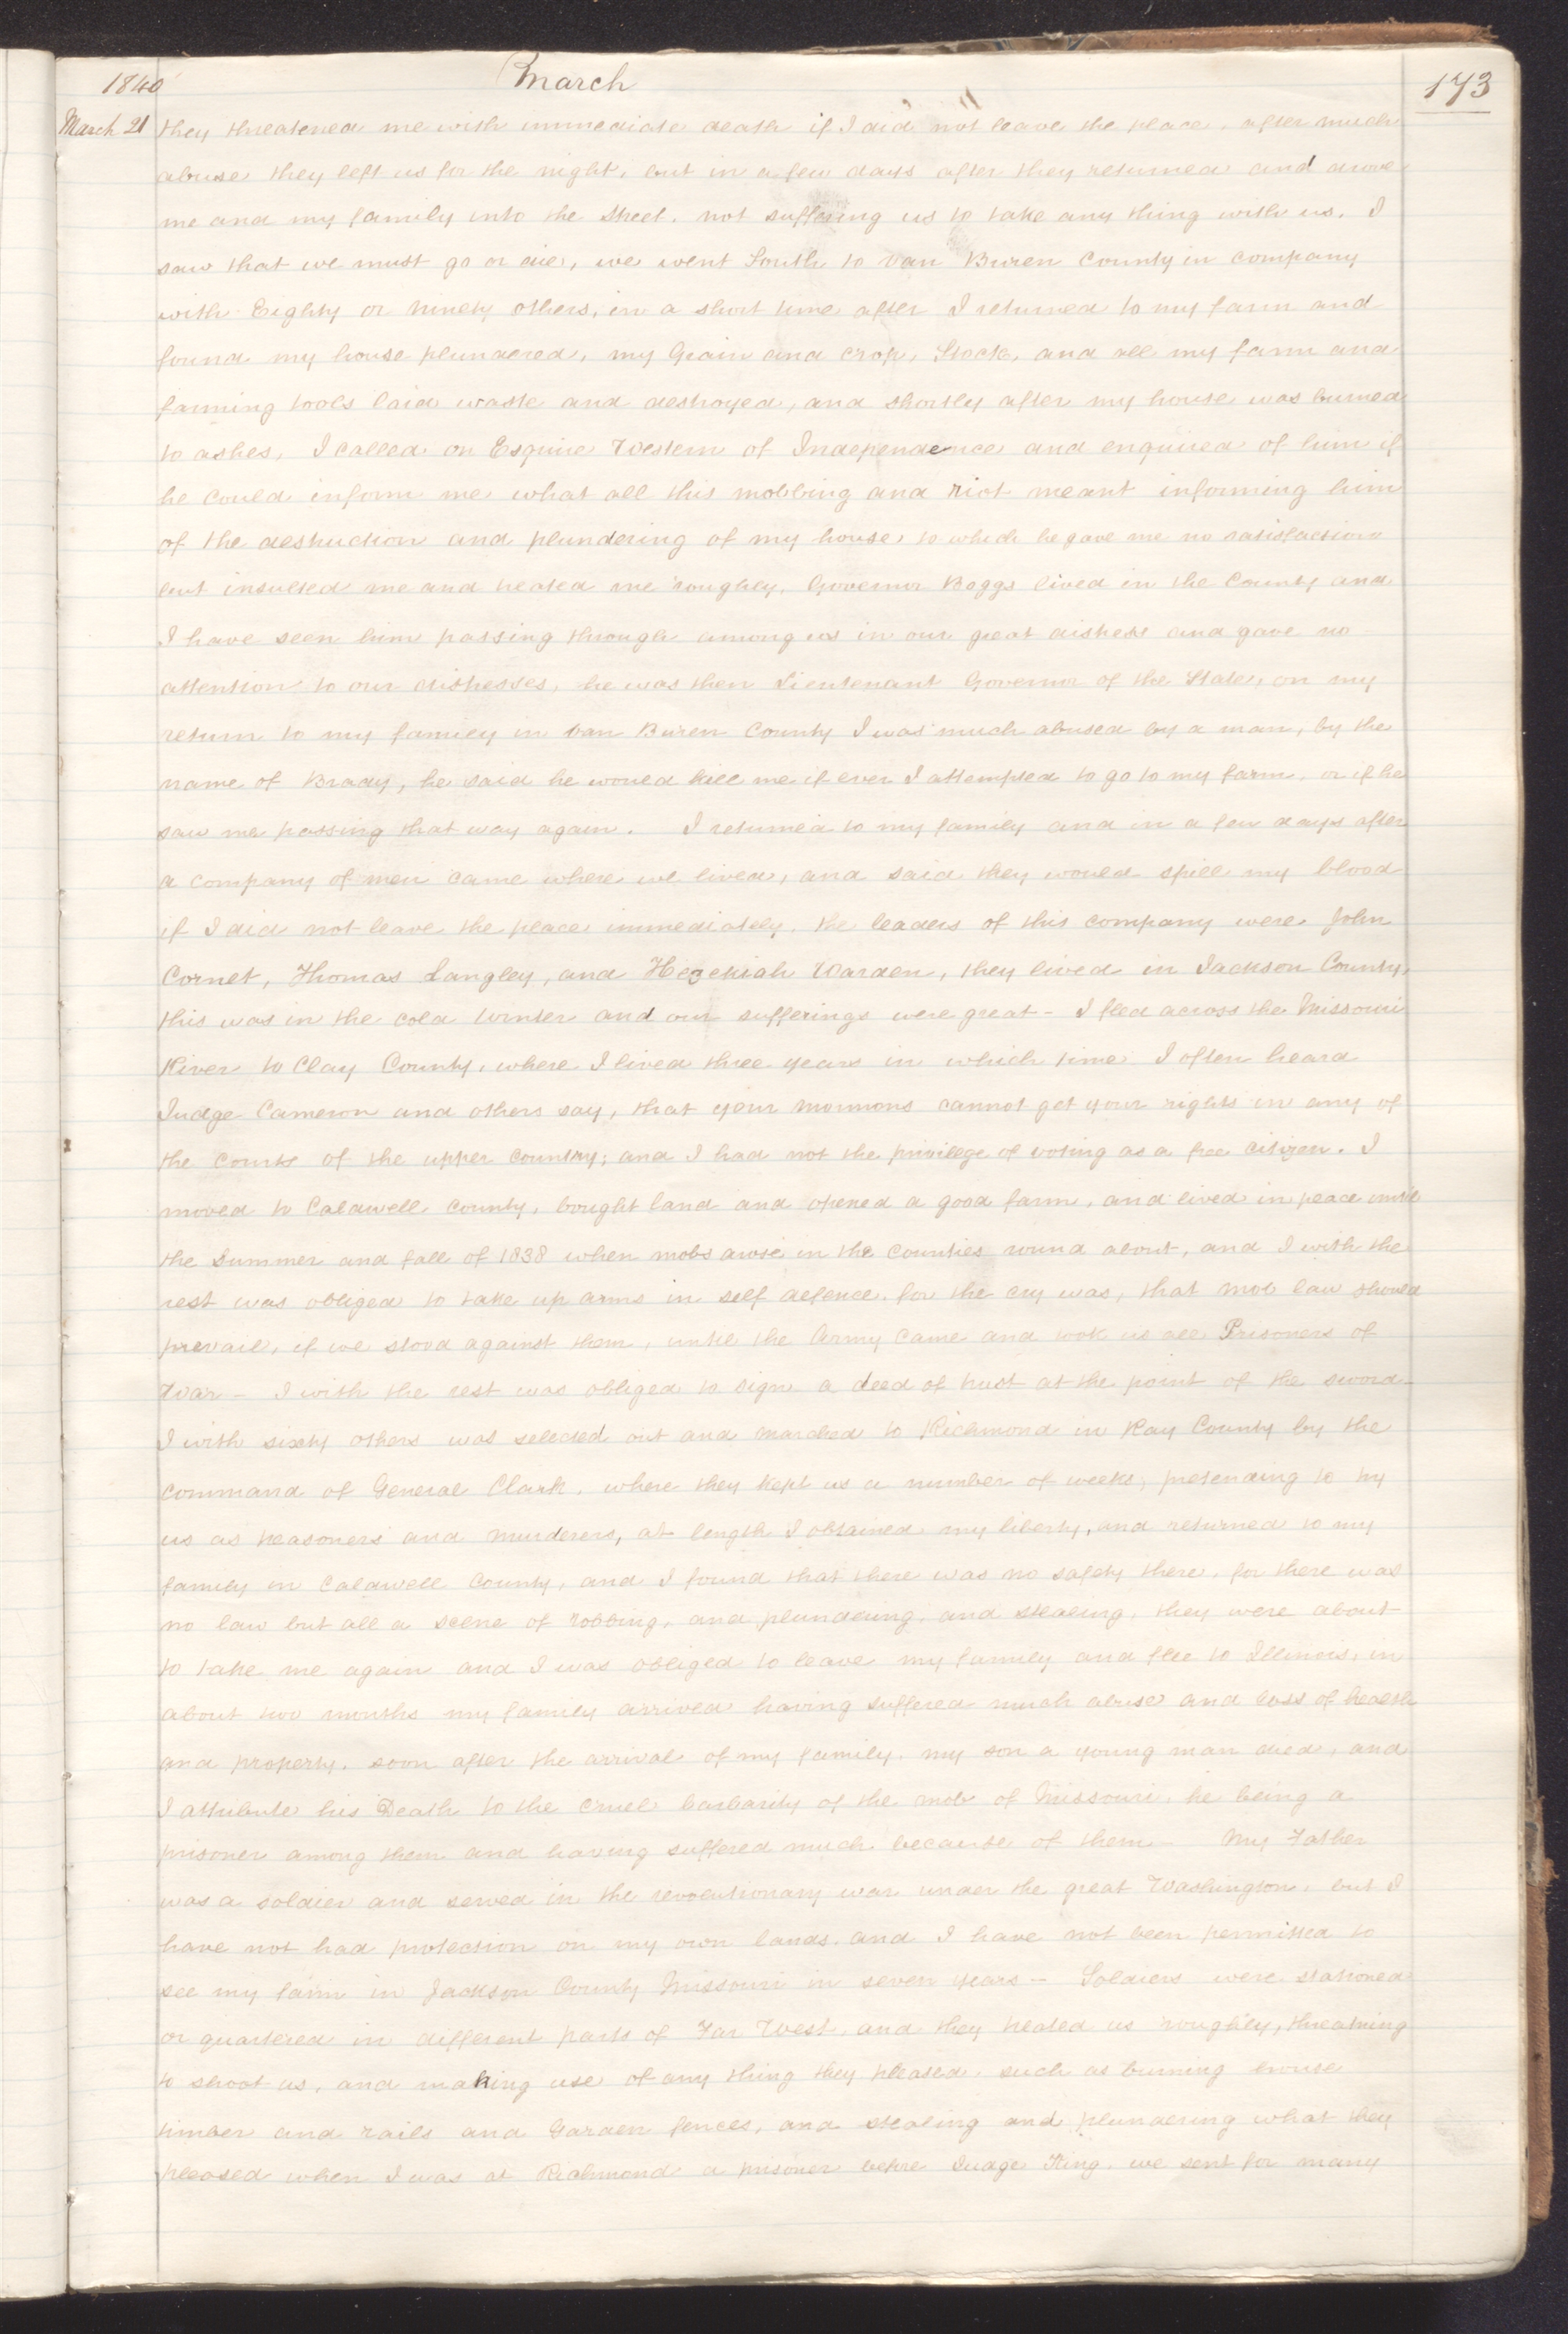 1840 March 173
March 21 they threatened me with immediate death if I did not leave the place, after much
abuse they left us for the night, but in a few days after they returned and drove
me and my family into the street, not suffering us to take any thing with us. I
saw that we must go or die, we went South to Van Buren County in company
with Eighty or ninety others, in a short time after I returned to my farm and
found my house plundered, my Grain and crop, Stock, and all my farm and
farming tools laid waste and destroyed, and shortly after my house was burned
to ashes, I called on Esquire Western of Independence and enquired of him if
he could inform me what all this mobbing and riot meant informing him
of the destruction and plundering of my house, to which he gave me no satisfaction
but insulted me and treated me roughly, Governor Boggs lived in the County and
I have seen him passing through among us in our great distress and gave no
attention to our distresses, he was then Lieutenant Governor of the State, on my
return to my family in Van Buren County I was much abused by a man, by the
name of Brady, he said he would kill me if ever I attempted to go to my farm, or if he
saw me passing that way again. I returned to my family and in a few days after
a company of men came where we lived, and said they would spill my blood
if I did not leave the place immediately, the leaders of this company were John
Cornet, Thomas Langley, and Hezekiah Warden, they lived in Jackson County,
this was in the cold winter and our sufferings were great - I fled across the Missouri
River to Clay County, where I lived three years in which time I often heard
Judge Cameron and others say, that your mormons cannot get your rights in any of
the Courts of the upper country; and I had not the privilege of voting as a free citizen. I
moved to Caldwell county, bought land and opened a good farm, and lived in peace until
the Summer and fall of 1838 when mobs arose in the Counties round about, and I with the
rest was obliged to take up arms in self defence, for the cry was, that mob law should
prevail, if we stood against them, until the Army came and took us all Prisoners of
War - I with the rest was obliged to sign a deed of trust at the point of the sword -
I with sixty others was selected out and marched to Richmond in Ray County by the
command of General Clark, where they kept us a number of weeks, pretending to try
us as treasoners and murderers, at length I obtained my liberty, and returned to my
family in Caldwell County, and I found that there was no safety there, for there was
no law but all a scene of robbing, and plundering, and stealing, they were about
to take me again and I was obliged to leave my family and flee to Illinois, in
about two months my family arrived having suffered much abuse and loss of health
and property, soon after the arrival of my family, my son a young man died, and
I attribute his Death to the cruel barbarity of the mob of Missouri, he being a
prisoner among them and having suffered much because of them - My Father
was a soldier and served in the revolutionary war under the great Washington, but I
have not had protection on my own lands, and I have not been permitted to
see my farm in Jackson County Missouri in seven years - Soldiers were stationed
or quartered in different parts of Far West, and they treated us roughly, threatning
to shoot us, and making use of any thing they pleased, such as burning house
timber and rails and Garden fences, and stealing and plundering what they
pleased when I was at Richmond a prisoner before Judge King, we sent for many